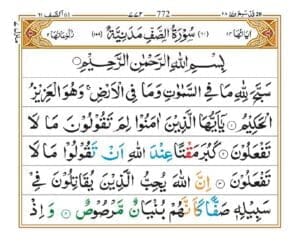 قد سمع الله ٢٨ 772 ٧٧٢ الصف ٦١
سُوْرَةُ الصَّفِّ مَدَنِيَّةٌ
بِسْمِ اللهِ الرَّحْمٰنِ الرَّحِيْمِ
سَبَّحَ لِلّٰهِ مَا فِي السَّمٰوٰتِ وَمَا فِي الْاَرْضِ ۚ وَهُوَ الْعَزِيْزُ
الْحَكِيْمُ ۝ يٰٓاَيُّهَا الَّذِيْنَ اٰمَنُوْا لِمَ تَقُوْلُوْنَ مَا لَا
تَفْعَلُوْنَ ۝ كَبُرَ مَقْتًا عِنْدَ اللهِ اَنْ تَقُوْلُوْا مَا لَا
تَفْعَلُوْنَ ۝ اِنَّ اللهَ يُحِبُّ الَّذِيْنَ يُقَاتِلُوْنَ فِيْ
سَبِيْلِهٖ صَفًّا كَاَنَّهُمْ بُنْيَانٌ مَّرْصُوْصٌ ۝ وَاِذْ